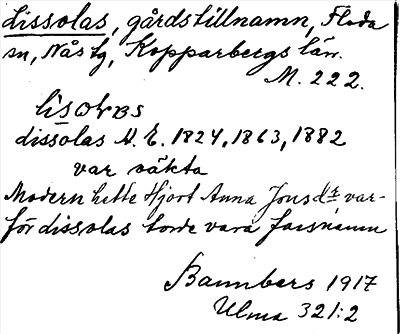 Lissolas, gårdstillnamn, Floda
sn, Nås tg, Kopparbergs län.
M. 222.
Lissolas H. E. 1824, 1863, 1882
var säkta
Modern hette Hjort Anna Jonsdr var-
för Lissolas torde vara farsnamn
Bannbers 1917
Ulma 321:2